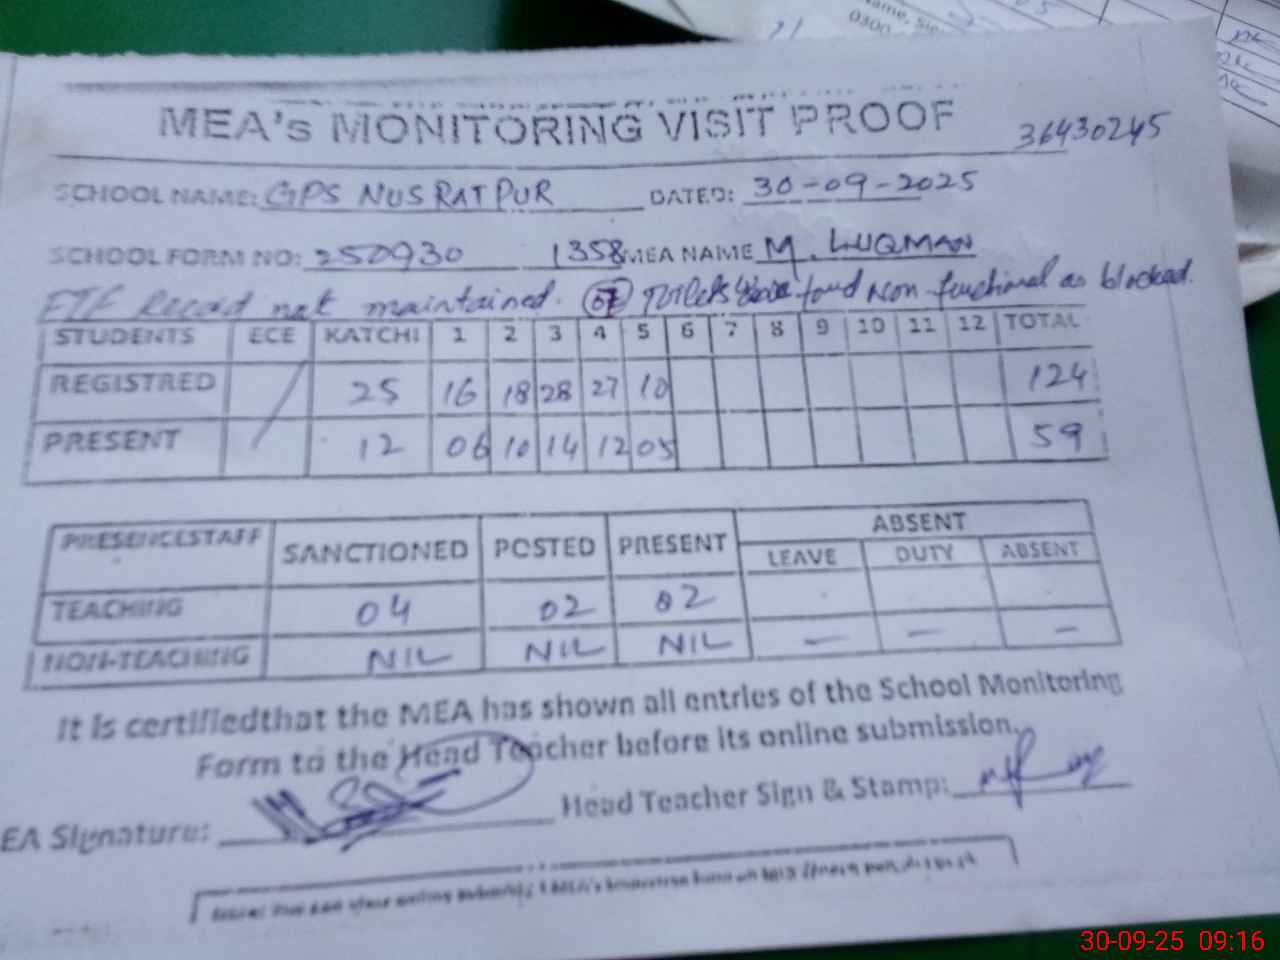 MEA's MONITORING VISIT PROOF 36430245
SCHOOL NAME: GPS NUSRATPUR DATED: 30-09-2025
SCHOOL FORM NO: 250930 1358 MEA NAME M. LUQMAN
FTF Record not maintained. 07 Toilets were found non functional as blocked.
STUDENTS ECE KATCHI 1 2 3 4 5 6 7 8 9 10 11 12 TOTAL
REGISTRED 25 16 18 28 27 10 124
PRESENT 12 06 10 14 12 05 59
PRESENCESTAFF SANCTIONED POSTED PRESENT ABSENT
LEAVE DUTY ABSENT
TEACHING 04 02 02
NON-TEACHING NIL NIL NIL — — —
It is certifiedthat the MEA has shown all entries of the School Monitoring
Form to the Head Teacher before its online submission.
EA Signature: Head Teacher Sign & Stamp:
30-09-25 09:16